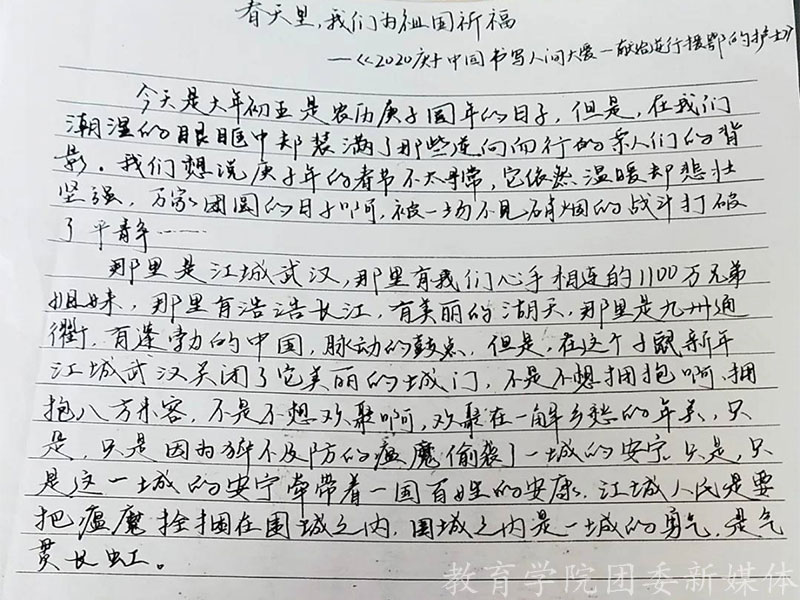 春天里,我们为祖国祈福
——《2020庚子中国书写人间大爱—献给逆行援鄂的护士》
今天是大年初五是农历庚子国年的日子,但是,在我们
潮湿的眼眶中却装满了那些逆向而行的亲人们的背
影。我们想说庚子年的春节不太寻常,它依然温暖却悲壮
坚强,万家团圆的日子啊,被一场不见硝烟的战斗打破
了平静……
那里是江城武汉,那里有我们心手相连的1100万兄弟
姐妹,那里有浩浩长江,有美丽的湖天,那里是九州通
衢,有蓬勃的中国,脉动的鼓点,但是,在这个子鼠新年
江城武汉关闭了它美丽的城门,不是不想拥抱啊,拥
抱八方来客,不是不想欢聚啊,欢聚在一解乡愁的年关,只
是,只是因为猝不及防的瘟魔偷袭了一城的安宁。只是,只
是这一城的安宁牵带着一国百姓的安康。江城人民是要
把瘟魔拴捆在围城之内,围城之内是一城的勇气,是气
贯长虹。
教育学院团委新媒体